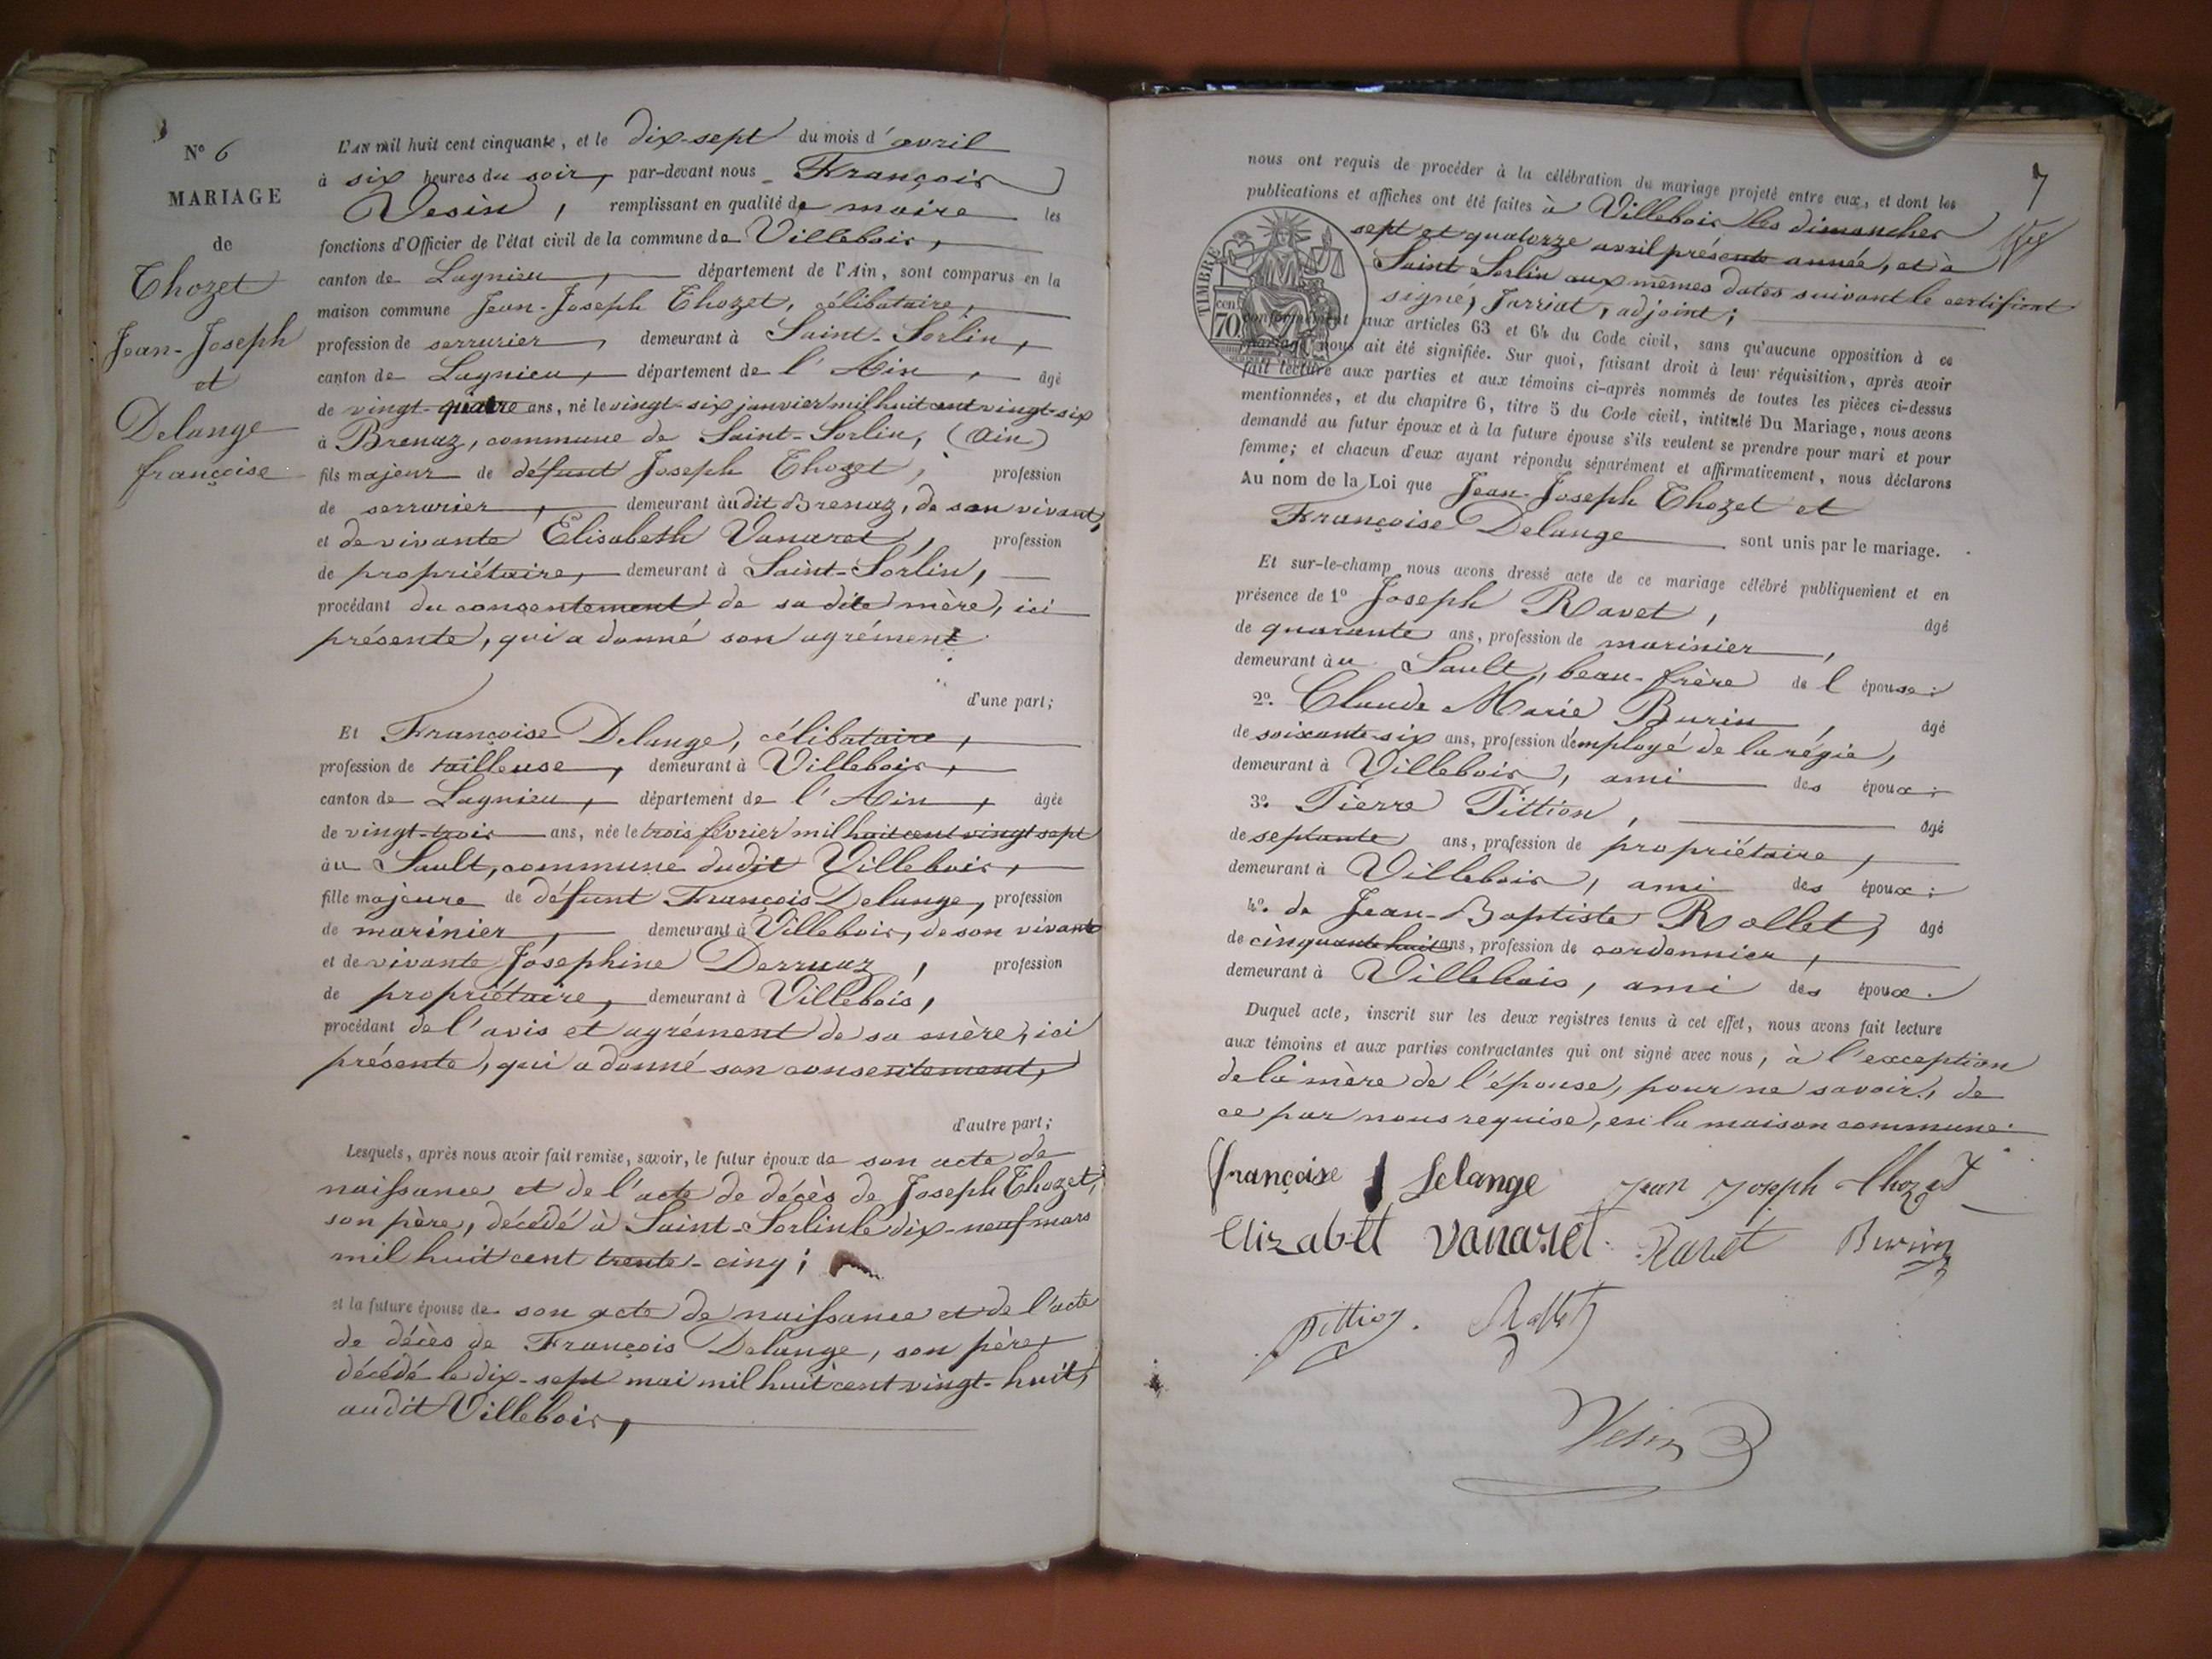 N° 6
MARIAGE
de
Thozet
Jean-Joseph
et
Delange
françoise
L'AN mil huit cent cinquante, et le dix-sept du mois d'avril
à six heures du soir, par-devant nous François
Vesin, remplissant en qualité de maire les
fonctions d'Officier de l'état civil de la commune de Villebois,
canton de Lagnieu, département de l'Ain, sont comparus en la
maison commune Jean-Joseph Thozet, célibataire,
profession de serrurier, demeurant à Saint-Sorlin,
canton de Lagnieu, département de l'Ain, âgé
de vingt-quatre ans, né le vingt-six janvier mil huit cent vingt-six
à Brenaz, commune de Saint-Sorlin, (Ain)
fils majeur de défunt Joseph Thozet, profession
de serrurier, demeurant audit Brenaz, de son vivant,
et de vivante Elisabeth Vanaret, profession
de propriétaire, demeurant à Saint-Sorlin,
procédant du consentement de sa dite mère, ici
présente, qui a donné son agrément
d'une part;
Et Françoise Delange, célibataire,
profession de tailleuse, demeurant à Villebois,
canton de Lagnieu, département de l'Ain, âgée
de vingt-trois ans, née le trois février mil huit cent vingt sept
au Sault, commune dudit Villebois,
fille majeure de défunt François Delange, profession
de marinier, demeurant à Villebois, de son vivant
et de vivante Josephine Derruaz, profession
de propriétaire, demeurant à Villebois,
procédant de l'avis et agrément de sa mère, ici
présente, qui a donné son consentement,
d'autre part;
Lesquels, après nous avoir fait remise, savoir, le futur époux de son acte de
naissance et de l'acte de décès de Joseph Thozet,
son père, décédé à Saint-Sorlin le dix-neuf mars
mil huit cent trente-cinq;
et la future épouse de son acte de naissance et de l'acte
de décès de François Delange, son père,
décédé le dix-sept mai mil huit cent vingt-huit,
audit Villebois,
7
nous ont requis de procéder à la célébration du mariage projeté entre eux, et dont les
publications et affiches ont été faites à Villebois les dimanches
sept et quatorze avril présente année, et à
Saint-Sorlin aux mêmes dates suivant le certificat
signé, Jarriat, adjoint;
TIMBRE
cen 70
conformément aux articles 63 et 64 du Code civil, sans qu'aucune opposition à ce
mariage nous ait été signifiée. Sur quoi, faisant droit à leur réquisition, après avoir
fait lecture aux parties et aux témoins ci-après nommés de toutes les pièces ci-dessus
mentionnées, et du chapitre 6, titre 5 du Code civil, intitulé Du Mariage, nous avons
demandé au futur époux et à la future épouse s'ils veulent se prendre pour mari et pour
femme; et chacun d'eux ayant répondu séparément et affirmativement, nous déclarons
Au nom de la Loi que Jean-Joseph Thozet et
Françoise Delange sont unis par le mariage.
Et sur-le-champ nous avons dressé acte de ce mariage célébré publiquement et en
présence de 1° Joseph Ravet, âgé
de quarante ans, profession de marinier,
demeurant au Sault, beau-frère de l'épouse;
2°. Claude Marie Burin, âgé
de soixante-six ans, profession d'employé de la régie,
demeurant à Villebois, ami des époux;
3°. Pierre Pittion, âgé
de septante ans, profession de propriétaire,
demeurant à Villebois, ami des époux;
4°. de Jean-Baptiste Rollet, âgé
de cinquante huit ans, profession de cordonnier,
demeurant à Villebois, ami des époux.
Duquel acte, inscrit sur les deux registres tenus à cet effet, nous avons fait lecture
aux témoins et aux parties contractantes qui ont signé avec nous, à l'exception
de la mère de l'épouse, pour ne savoir, de
ce par nous requise, en la maison commune.
françoise Delange Jean Joseph Thozet
Elizabett vanaret Ravet Burin
pittion. Rollet
Vesin